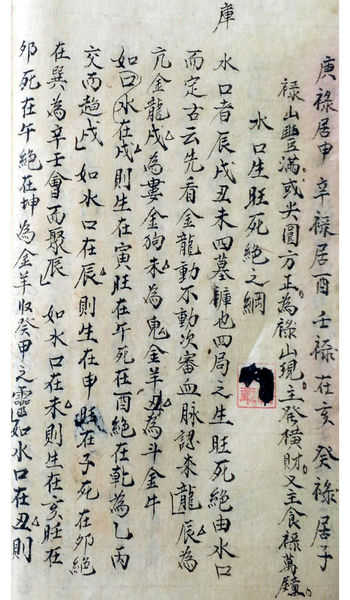 庚禄居申辛禄居酉壬禄在亥癸禄居子
禄山豐滿或尖圓方正為禄山現主發横財又主食禄萬鍾
水口生旺死絕之綱
庫
水口者辰戌丑未四墓庫也四局之生旺死絕由水口
而定古云先看金龍動不動次審血脉認来龍辰為
亢金龍戌為婁金狗未為鬼金羊丑為斗金牛
如口水在戌則生在寅旺在午死在酉絕在乾為乙丙
交而趨戌如水口在辰則生在申旺在子死在卯絕
在巽為辛壬會而聚辰如水口在未則生在亥旺在
卯死在午絕在坤為金羊収癸甲之靈如水口在丑則